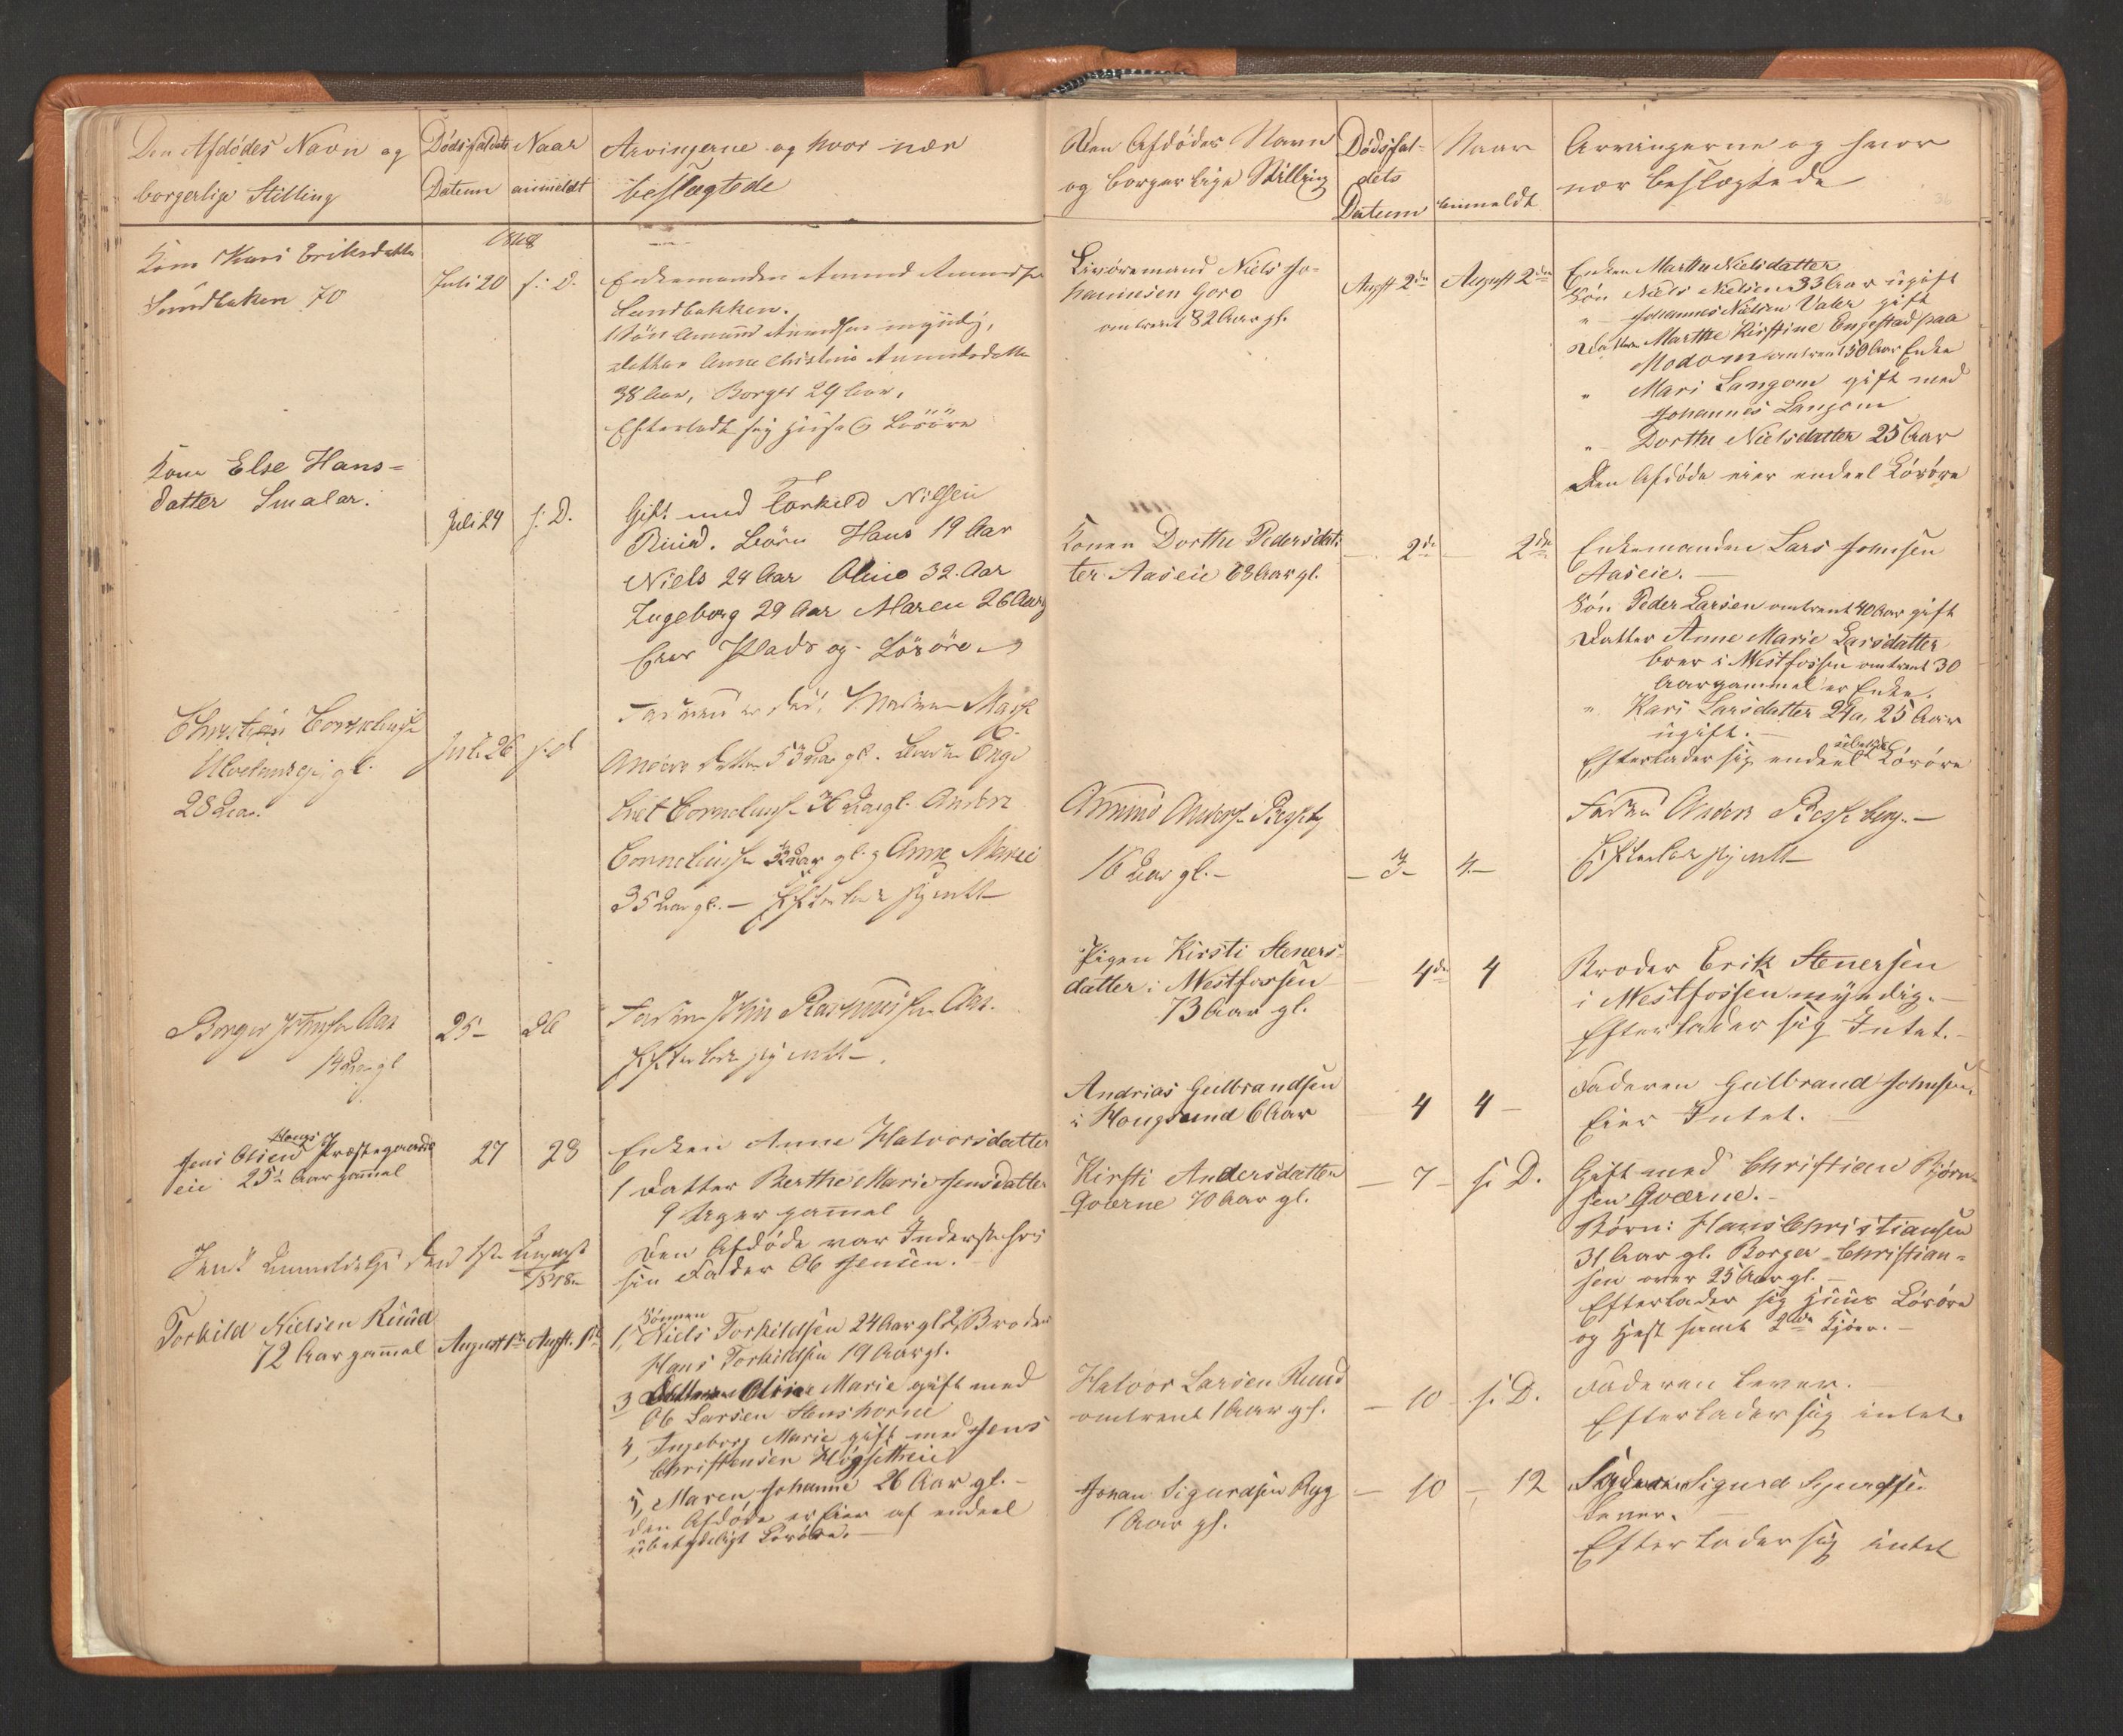 Den Afdødes Navn og
borgerlige Stilling
Dødsfaldets
Datum
Naar
anmeldt
Arvingerne og hvor nær
beslægtede
1848
Kone Kari Eriksdatter
Sundbakken 70
Juli 20
s: D.
Enkemanden Amund Amundsen
Sundbakken.
1 Søn Amund Amundsen myndig,
Datter Anne Christine Amundsdatter
38 Aar, Borger 29 Aar.
Efterladt sig Løsöre
Kone Else Hans=
datter Smalar.
Juli 24
s: D.
Gift med Torkild Nilsen
Ruud. Börn Hans 19 Aar
Niels 24 Aar Oline 32 Aar
Ingeborg 29 Aar Maren 26 Aar
Eier Plads og Løsöre
Christian Cornelius
gl.
28 Aar
Juli 26
s. d
Faderen er död. Moderen
Anders datter 53 Aar gl. Brødre
Corneliusen Aar gl. Anders
Corneliusen Aar gl. og Anne Marie
35 Aar gl. — Efterlader sig intet
Borger Johnsen Aas
14 Aar gl
25
26
Faderen John Rasmussen Aas.
Efterlader sig intet.
Jens Olsen Hougs Præstegaards
eie 25½ Aar gammel
27
28
Enken Anne Halvorsdatter
1 Datter Berthe Marie Jensdatter
9 Uger gammel
Den Afdøde var Inderst hos
sin Fader Ole Jensen.
Sendt Anmeldelse den 1ste August
1848
Torkild Nielsen Ruud
72 Aar gammel
August 1ste
Augst. 1ste
Sönnen
1, Niels Torkildsen 24 Aar gl 2, Broder
Hans Torkildsen 19 Aar gl.
3 Datteren Oline Marie gift med
Ole Larsen Stenshorne
4, Ingeborg Marie gift med Jens
Christensen Høgsetheie
5, Maren Johanne 26 Aar gl.
den Afdøde er Eier af endeel
ubetydeligt Løsöre.
Den Afdödes Navn
og borgerlige Stilling
Dødsfal-
dets
Datum
Naar
anmeldt
Arvingerne og hvor
nær beslægtede
Livöremand Niels Jo-
hannesen Goro
omtrent 82 Aar gl.
Augst 2den
August 2den
Enken Marthe Nielsdatter
Sön Niels Nielsen 33 Aar ugift
" Johannes Nielsen Valer gift
Datter Marthe Kirstine Engestad paa
Modom omtrent 50 Aar Enke
" Mari Langom gift med
Johannes Langom
" Dorthe Nielsdatter 25 Aar
Den Afdöde eier endeel Lösöre
Konen Dorthe Pedersdat-
ter Aaseie 68 Aar gl.
2de
2den
Enkemanden Lars Johnsen
Aaseie. —
Sön Peder Larsen omtrent 40 Aar gift
Datter Anne Marie Larsdatter
boer i Vestfossen omtrent 30
Aar gammel er Enke.
" Kari Larsdatter 24 a 25 Aar
ugift. —
Efterlader sig endeel ubetydel. Lösöre
Amund Andersen
16 Aar gl. —
3
4
Faderen Anders
Efterlader sig intet
Pigen Kirsti Steners-
datter i Vestfossen
73 Aar gl.
4de
4
Broder Erik Stenersen
i Vestfossen myndig. —
Efterlader sig Intet. —
Andrias Gulbrandsen
i Hougsund 6 Aar
4
4 —
Faderen Gulbrand Johnsen.
Eier Intet. —
Kirsti Andersdatter
Qværne 70 Aar gl.
— 7 —
s. D.
Gift med Christian Bjørn-
sen Qværne. —
Börn: Hans Christiansen
31 Aar gl. Borger Christian=
sen over 25 Aar gl. —
Efterlader sig Huus Lösöre
og Hest samt 2de Kjöer. —
Halvor Larsen Ruud
omtrent 1 Aar gl.
— 10
s. D.
Faderen lever.
Efterlader sig intet.
Johan Sigurdsen Ryg
1 Aar gl.
— 10
— 12
Faderen Sigurd Sigurdsen
lever. —
Efterlader sig intet